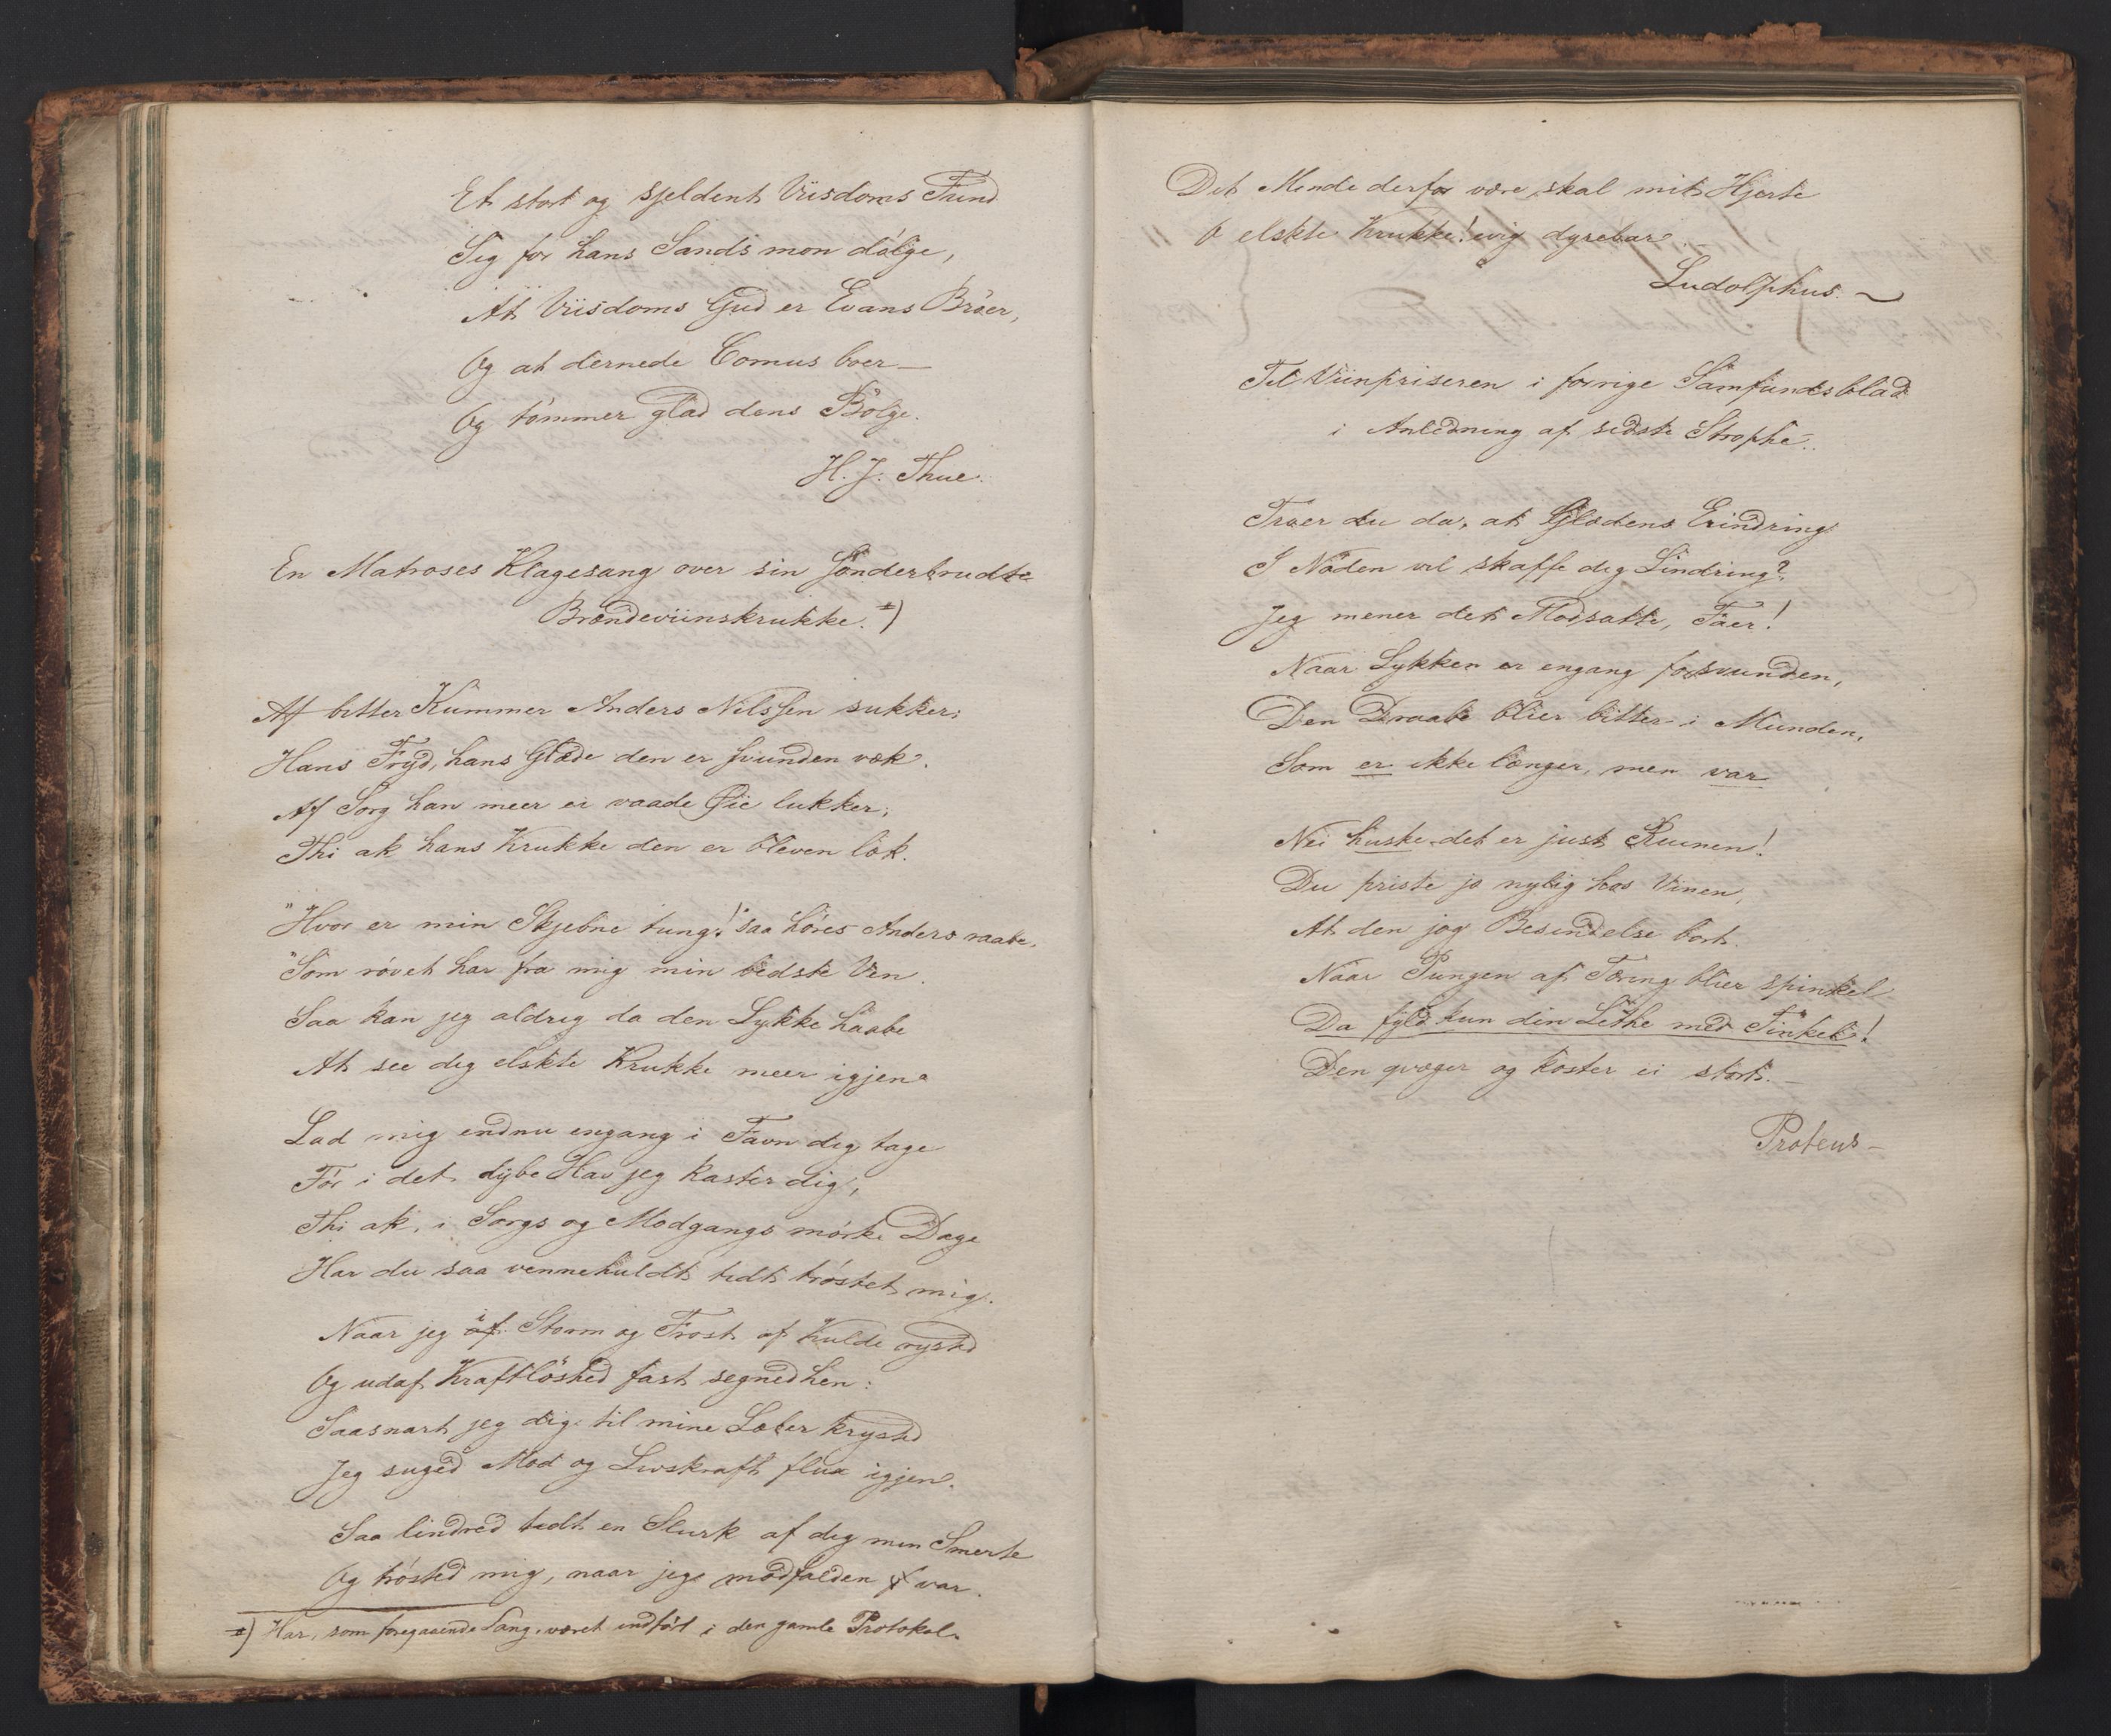 Et stort og sjeldent Viisdoms Fund
Sig for hans Sands mon dølge,
At Viisdoms Gud er Evans Broer,
Og at dernede Comus boer —
Og tømmer glad dens Bølge.
H. J. Thue.
En Matroses Klagesang over sin sønderbrudte
Brændeviinskrukke. *)
Af bitter Kummer Anders Nilssen sukker;
Hans Fryd, hans Glæde den er svunden væk.
Af Sorg han meer ei vaade Øie lukker;
Thi ak hans Krukke den er bleven læk.
"Hvor er min Skjebne tung!" saa høres Anders raabe,
"Som røvet har fra mig min bedste Ven.
Saa kan jeg aldrig da den Lykke haabe
At see dig elskte Krukke meer igjen.
Lad mig endnu engang i Favn dig tage
Før i det dybe Hav jeg kaster dig,
Thi ak, i Sorgs og Modgangs mørke Dage
Har du saa vennehuldt tidt trøstet mig.
Naar jeg i Storm og Frost af Kulde rysted
Og udaf Kraftløshed fast segned hen:
Saasnart jeg dig til mine Læber krysted
Jeg suged Mod og Livskraft flux igjen.
Saa lindred tidt en Slurk af dig min Smerte
Og trøsted mig, naar jeg modfalden var.
*) Har, som foregaaende Sang, været indført i den gamle Protokol.
Dit Minde derfor være skal mit Hjerte
O elskte Krukke! evig dyrebar.
Ludolphus. —
Til Viinpriseren i forrige Samfundsblad
i Anledning af sidste Strophe.
Troer du da, at Glædens Erindring
I Nøden vil skaffe dig Lindring?
Jeg mener det Modsatte, Faer!
Naar Lykken er engang forsvunden,
Den Draabe blier bitter i Munden,
Som er ikke længer, men var
Nei huske det er just Ruinen!
Du priste jo nylig hos Vinen,
At den jog Besindelse bort.
Naar Pungen af Tæring blier spinkel
Da fyld kun din Lethe med Finkel!
Den qvæger og koster ei stort. —
Proteus —